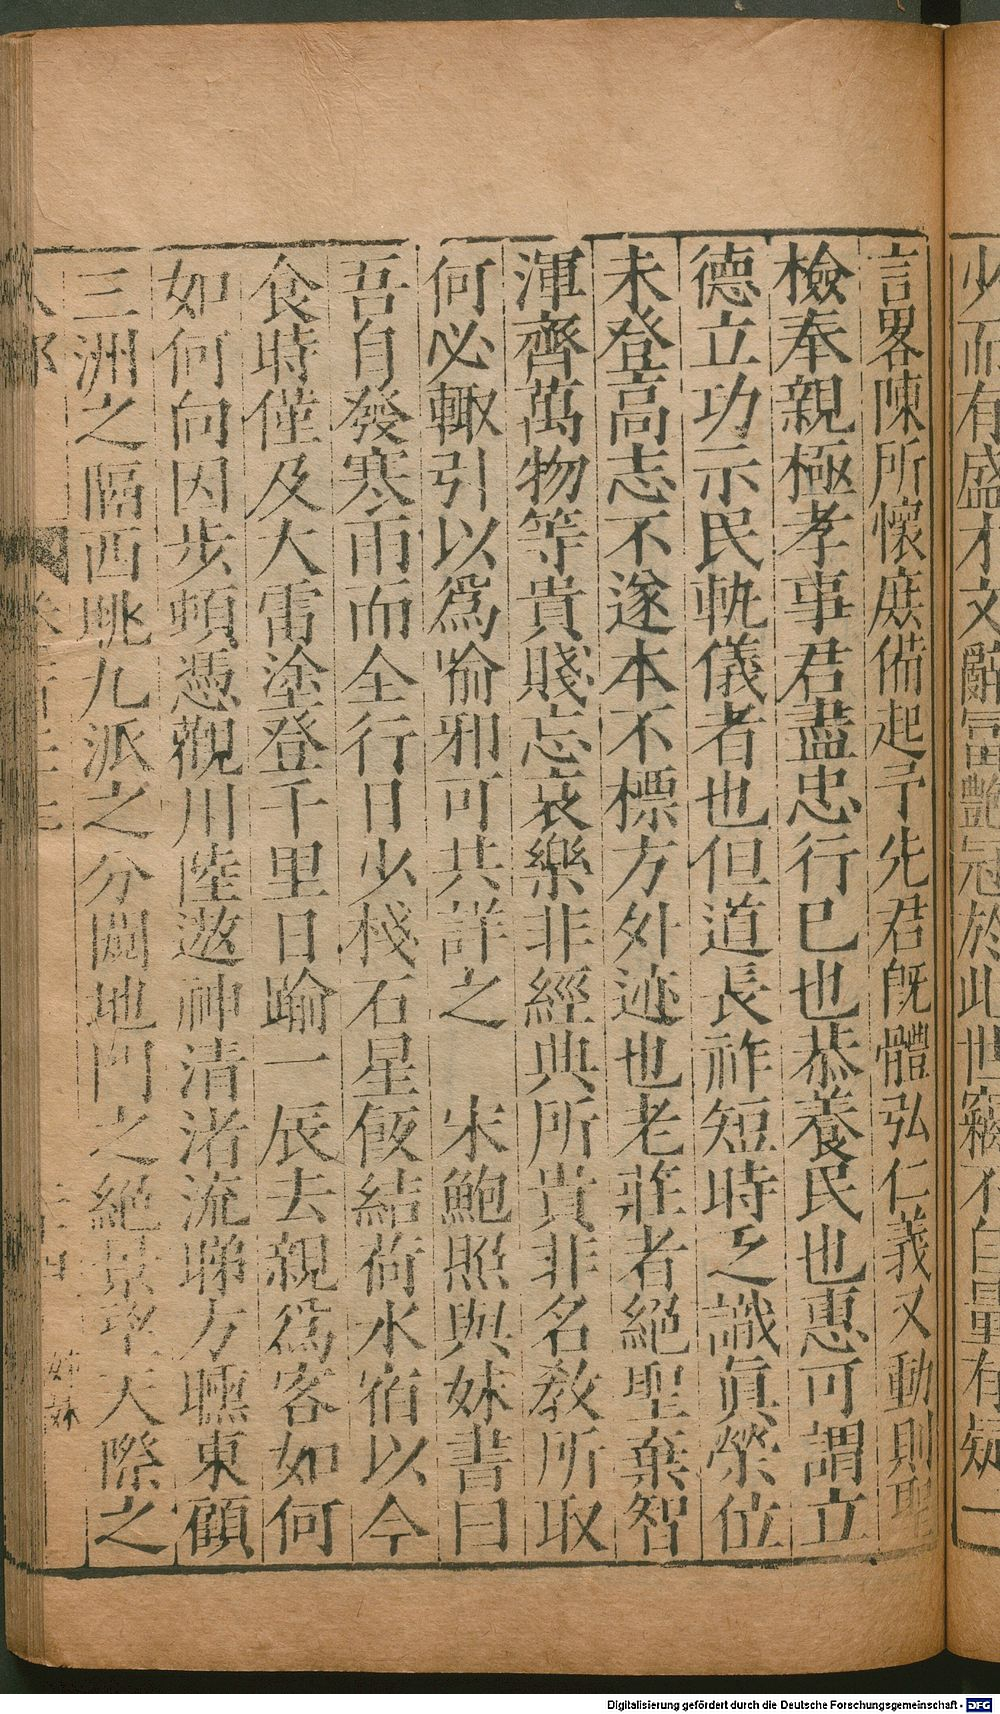 少而有盛才文辭富艷冠於此世竊不自量有疑一
言畧陳所懷庶備起予先君旣體弘仁義又動則聖
檢奉親極孝事君盡忠行已也恭養民也惠可謂立
德立功示民軌儀者也但道長祚短時乏識眞榮位
未登高志不遂本不標方外迹也老莊者絕聖棄智
渾齊萬物等貴賤忘哀樂非經典所貴非名敎所取
何必輙引以爲喻邪可共詳之　宋鮑照與妹書曰
吾自發寒雨而全行日少棧石星飯結荷水宿以今
食時僅及大雷塗登千里日踰一辰去親爲客如何
如何向因步頓憑觀川陸遨神清渚流睇方曛東顧
三洲之隔西眺九派之分闚地門之絕景望天際之
姊妹
Digitalisierung gefördert durch die Deutsche Forschungsgemeinschaft - DFG